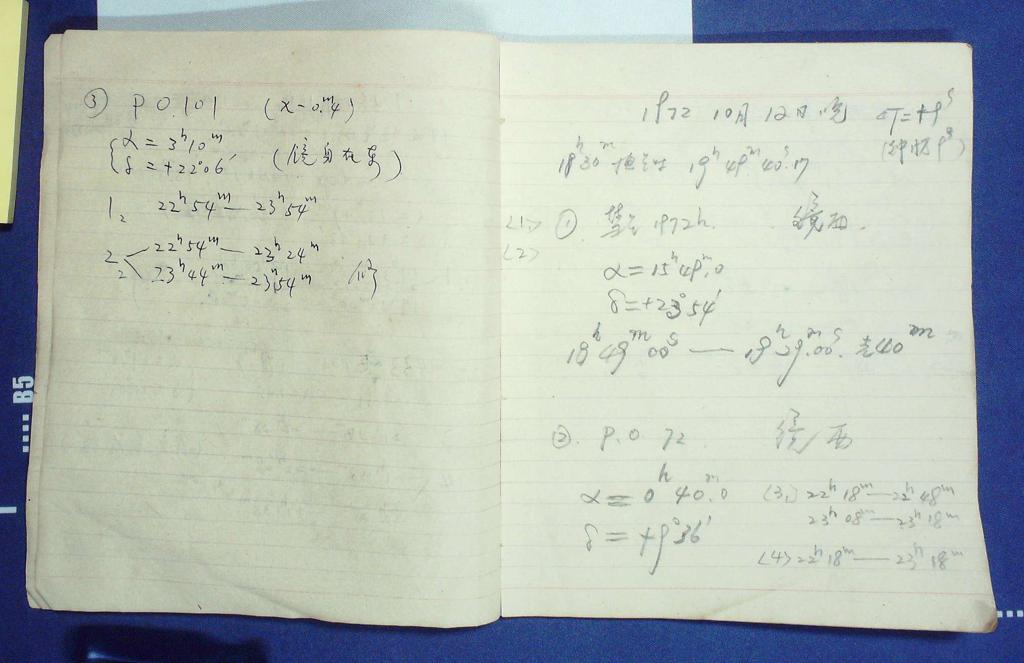 ③ P O.101 (x-0.ᵐ4)
α = 3ʰ10ᵐ
δ = +22°06′ (镜身在东)
1₂ 22ʰ54ᵐ — 23ʰ54ᵐ
2₂ 22ʰ54ᵐ — 23ʰ24ᵐ
23ʰ44ᵐ — 23ʰ54ᵐ
1972 10月 12日 晚
18ʰ30ᵐ 19ʰ49ᵐ40ˢ.17
<1> ① 彗星 1972h. 镜西.
<2>
α = 15ʰ49ᵐ.0
δ = +23°54′
18ʰ49ᵐ00ˢ — 19ʰ29ᵐ.00ˢ. 40ᵐ
②. P.O 72 镜西
α = 0ʰ40ᵐ.0 (3.) 22ʰ18ᵐ — 22ʰ48ᵐ
23ʰ08ᵐ — 23ʰ18ᵐ
δ = +9°36′
(4) 22ʰ18ᵐ — 23ʰ18ᵐ
B5